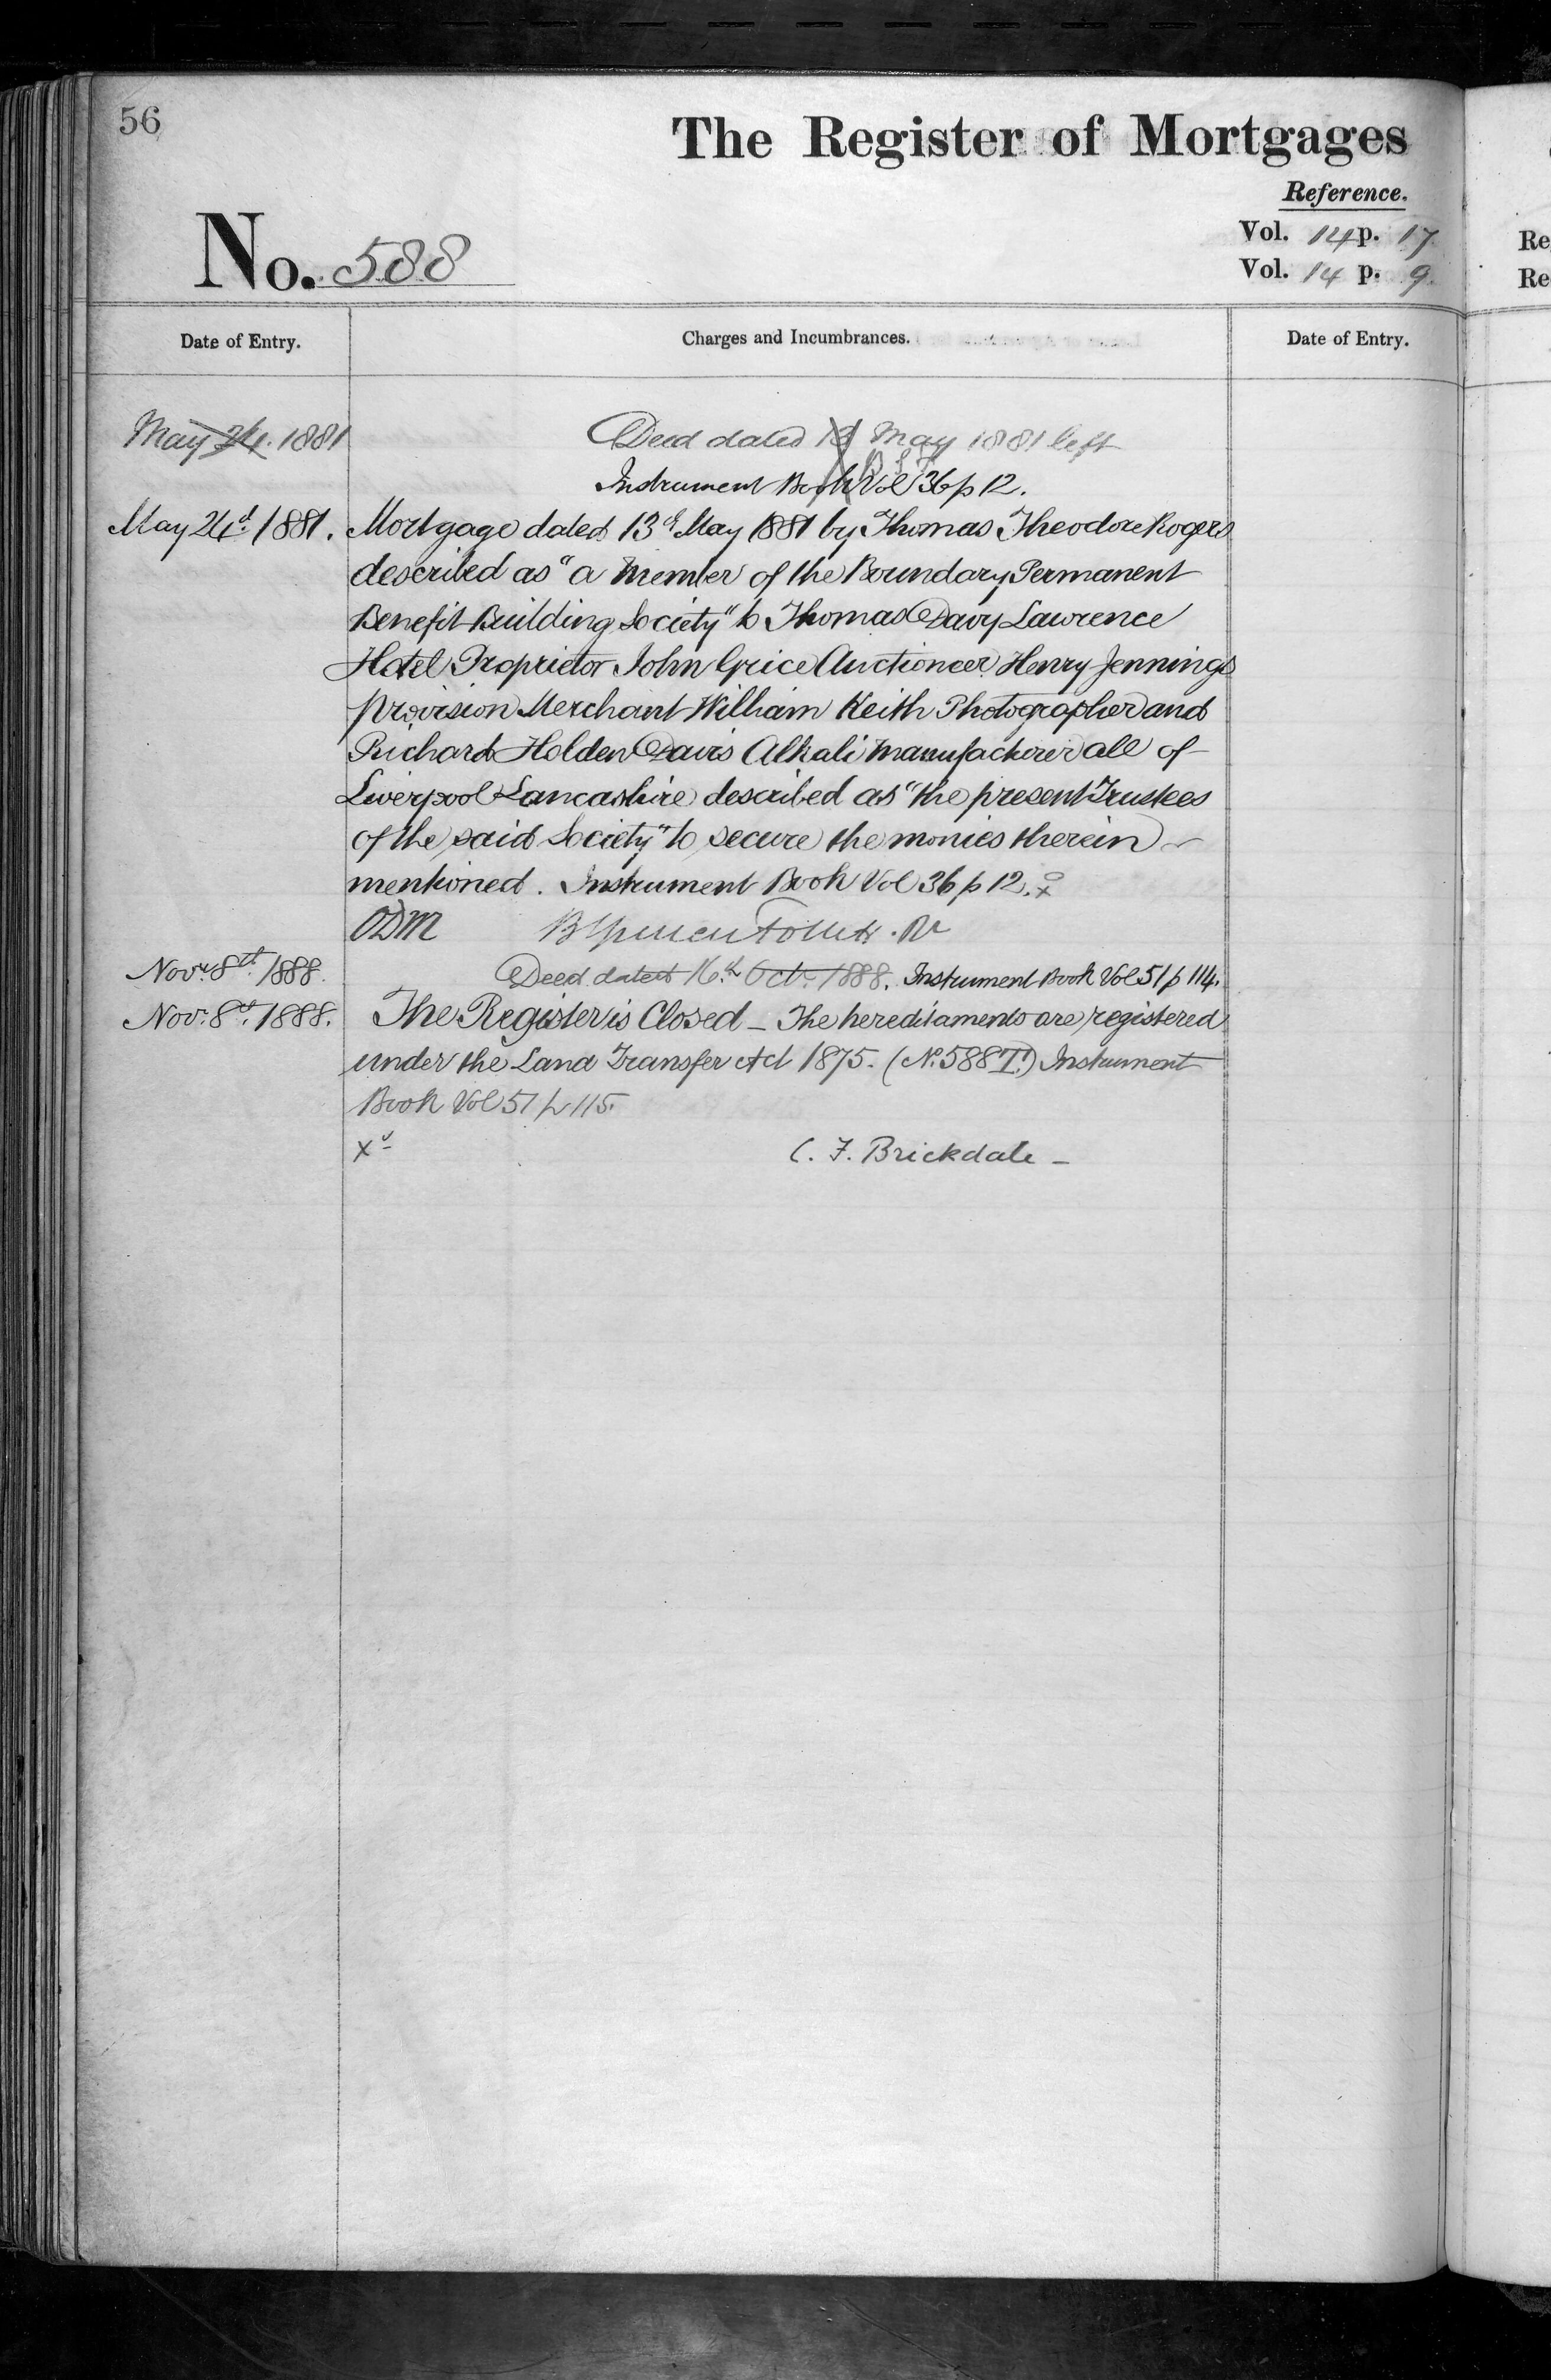 56
The Register of Mortgages
Reference.
Vol. 14 p. 17
No. 588
Vol. 14 p. 9.
Re
Re
Date of Entry.
Charges and Incumbrances.
Date of Entry.
May 24. 1881
Deed dated 13 May 1881 left
Instrument Book Vol 36 p 12.
May 24th 1881.
Mortgage dated 13th May 1881 by Thomas Theodore Rogers
described as "a Member of the Boundary Permanent
Benefit Building Society" to Thomas Davy Lawrence
Hotel Proprietor John Grice Auctioneer Henry Jennings
Provision Merchant William Keith Photographer and
Richard Holden Davis Alkali Manufacturer all of
Liverpool Lancashire described as "the present Trustees
of the said Society" to secure the monies therein
mentioned. Instrument Book Vol 36 p 12.
ODM
Novr. 8th. 1888.
Deed dated 16th Oct. 1888. Instrument Book Vol 51 p 114.
Nov. 8th. 1888.
The Register is Closed – The hereditaments are registered
under the Land Transfer Act 1875. (No. 588 T.) Instrument
Book Vol 51 p 115.
C. F. Brickdale –